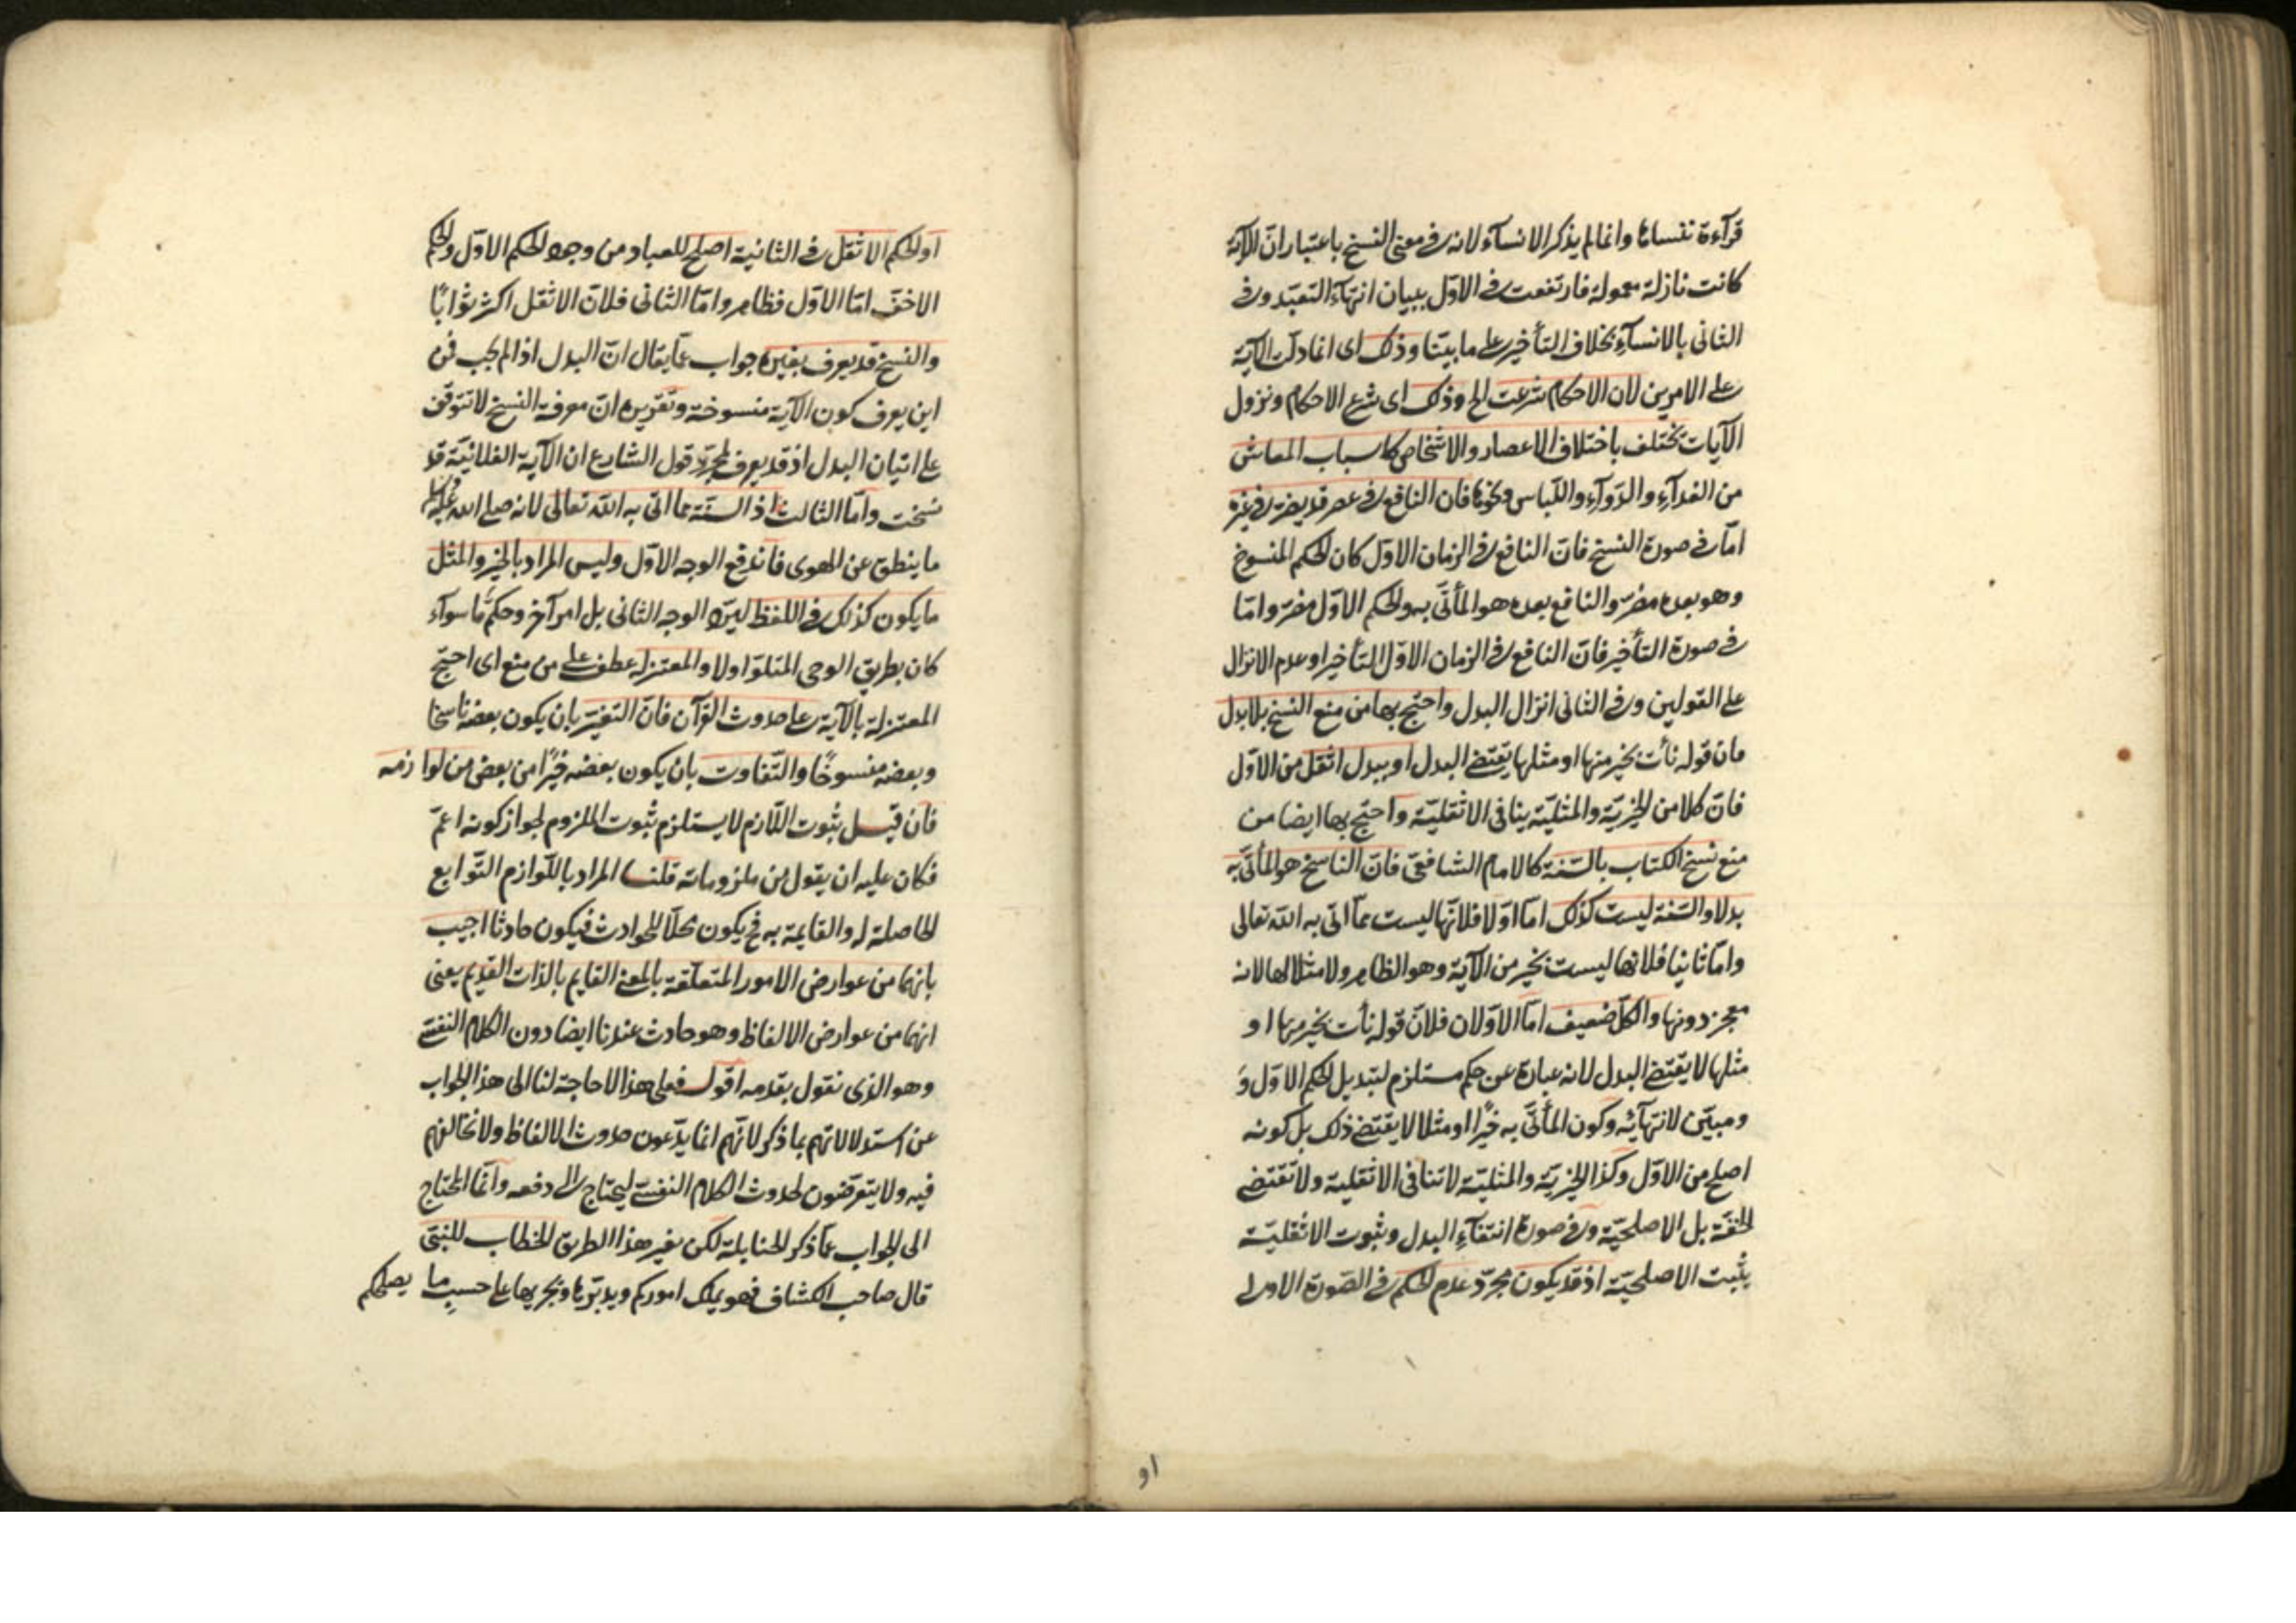 قرآءة ننساها وانما لم يذكر الانسآء لانه فى معنى النسخ باعتبار ان الآية
كانت نازلة معمولة فارتفعت فى الاول ببيان انتهآء التعبد وفى
الثانى بالانسآء بخلاف التأخير على ما بيننا وذلك اى انما دلت الآية
على الامرين لان الاحكام شرعت الخ وذلك اى شرع الاحكام ونزول
الآيات تختلف باختلاف الاعصار والاشخاص كاسباب المعاش
من الغدآء والدوآء واللباس ونحوها فان النافع فى عصر قد يضر فى غيره
اما فى صورة النسخ فان النافع فى الزمان الاول كان الحكم المنسوخ
وهو بعده مضر والنافع بعده هو المأتى به والحكم الاول مضر واما
فى صورة التأخير فان النافع فى الزمان الاول التأخير او عدم الانزال
على القولين وفى الثانى انزال البدل واحتج بها من منع النسخ بلا بدل
فان قوله نأت بخير منها او مثلها يقتضى البدل او ببدل اثقل من الاول
فان كلا من الخيرية والمثلية ينافى الاثقلية واحتج بها ايضا من
منع نسخ الكتاب بالسنة كالامام الشافعى فان الناسخ هو المأتى به
بدلا والسنة ليست كذلك اما اولا فلانها ليست مما اتى به الله تعالى
واما ثانيا فلانها ليست بخير من الآية وهو الظاهر ولا مثلا لها لانه
معجز دونها والكل ضعيف اما الاولان فلان قوله نأت بخير منها او
مثلها لا يقتضى البدل لانه عبارة عن حكم مستلزم لتبديل الحكم الاول و
ومبين لانتهائه وكون المأتى به خيرا او مثلا لا يقتضى ذلك بل كونه
اصلح من الاول وكذا الخيرية والمثلية لا تنافى الاثقلية ولا تقتضى
الخفة بل الاصلحية وفى صورة انتفآء البدل وثبوت الاثقلية
يثبت الاصلحية اذ قد يكون مجرد عدم الحكم فى الصورة الاولى
او
او الحكم الاثقل فى الثانية اصلح للعباد من وجود الحكم الاول والحكم
الاخف اما الاول فظاهر واما الثانى فلان الاثقل اكثر ثوابا
والنسخ قد يعرف بغيره جواب عما يقال ان البدل اذا لم يجب فمن
اين يعرف كون الآية منسوخة وتقريره ان معرفة النسخ لا تتوقف
على اتيان البدل اذ قد يعرف بمجرد قول الشارع ان الآية الفلانية قد
نسخت واما الثالث اذ السنة مما اتى به الله تعالى لانه صلى الله عليه وسلم
ما ينطق عن الهوى فاندفع الوجه الاول وليس المراد بالخير والمثل
ما يكون كذلك فى اللفظ ليرد الوجه الثانى بل امر آخر وحكم ما سوآء
كان بطريق الوحى المتلو اولا والمعتزلة عطف على من منع اى احتج
المعتزلة بالآية على حدوث القرآن فان التغير بان يكون بعضه ناسخا
وبعضه منسوخا والتفاوت بان يكون بعضه خيرا من بعض من لوازمه
فان قيل ثبوت اللازم لا يستلزم ثبوت الملزوم لجواز كونه اعم
فكان عليه ان يقول من ملزوماته قلنا المراد باللوازم التوابع
الحاصلة له والقايمة به فح يكون محلا للحوادث فيكون حادثا اجيب
بانهما من عوارض الامور المتعلقة بالمعنى القايم بالذات القديم يعنى
انهما من عوارض الالفاظ وهو حادث عندنا ايضا دون الكلام النفسى
وهو الذى نقول بقدمه اقول فعلى هذا لا حاجة لنا الى هذا الجواب
عن استدلالاتهم بما ذكر لانهم انما يدعون حدوث الالفاظ ولا نخالفهم
فيه ولا يتعرضون لحدوث الكلام النفسى ليحتاج الى دفعه وانما المحتاج
الى الجواب عما ذكر الحنابلة لكن بغير هذا الطريق الخطاب للنبى
قال صاحب الكشاف فهو يملك اموركم ويدبرها ويجريها على حسب ما يصلحكم